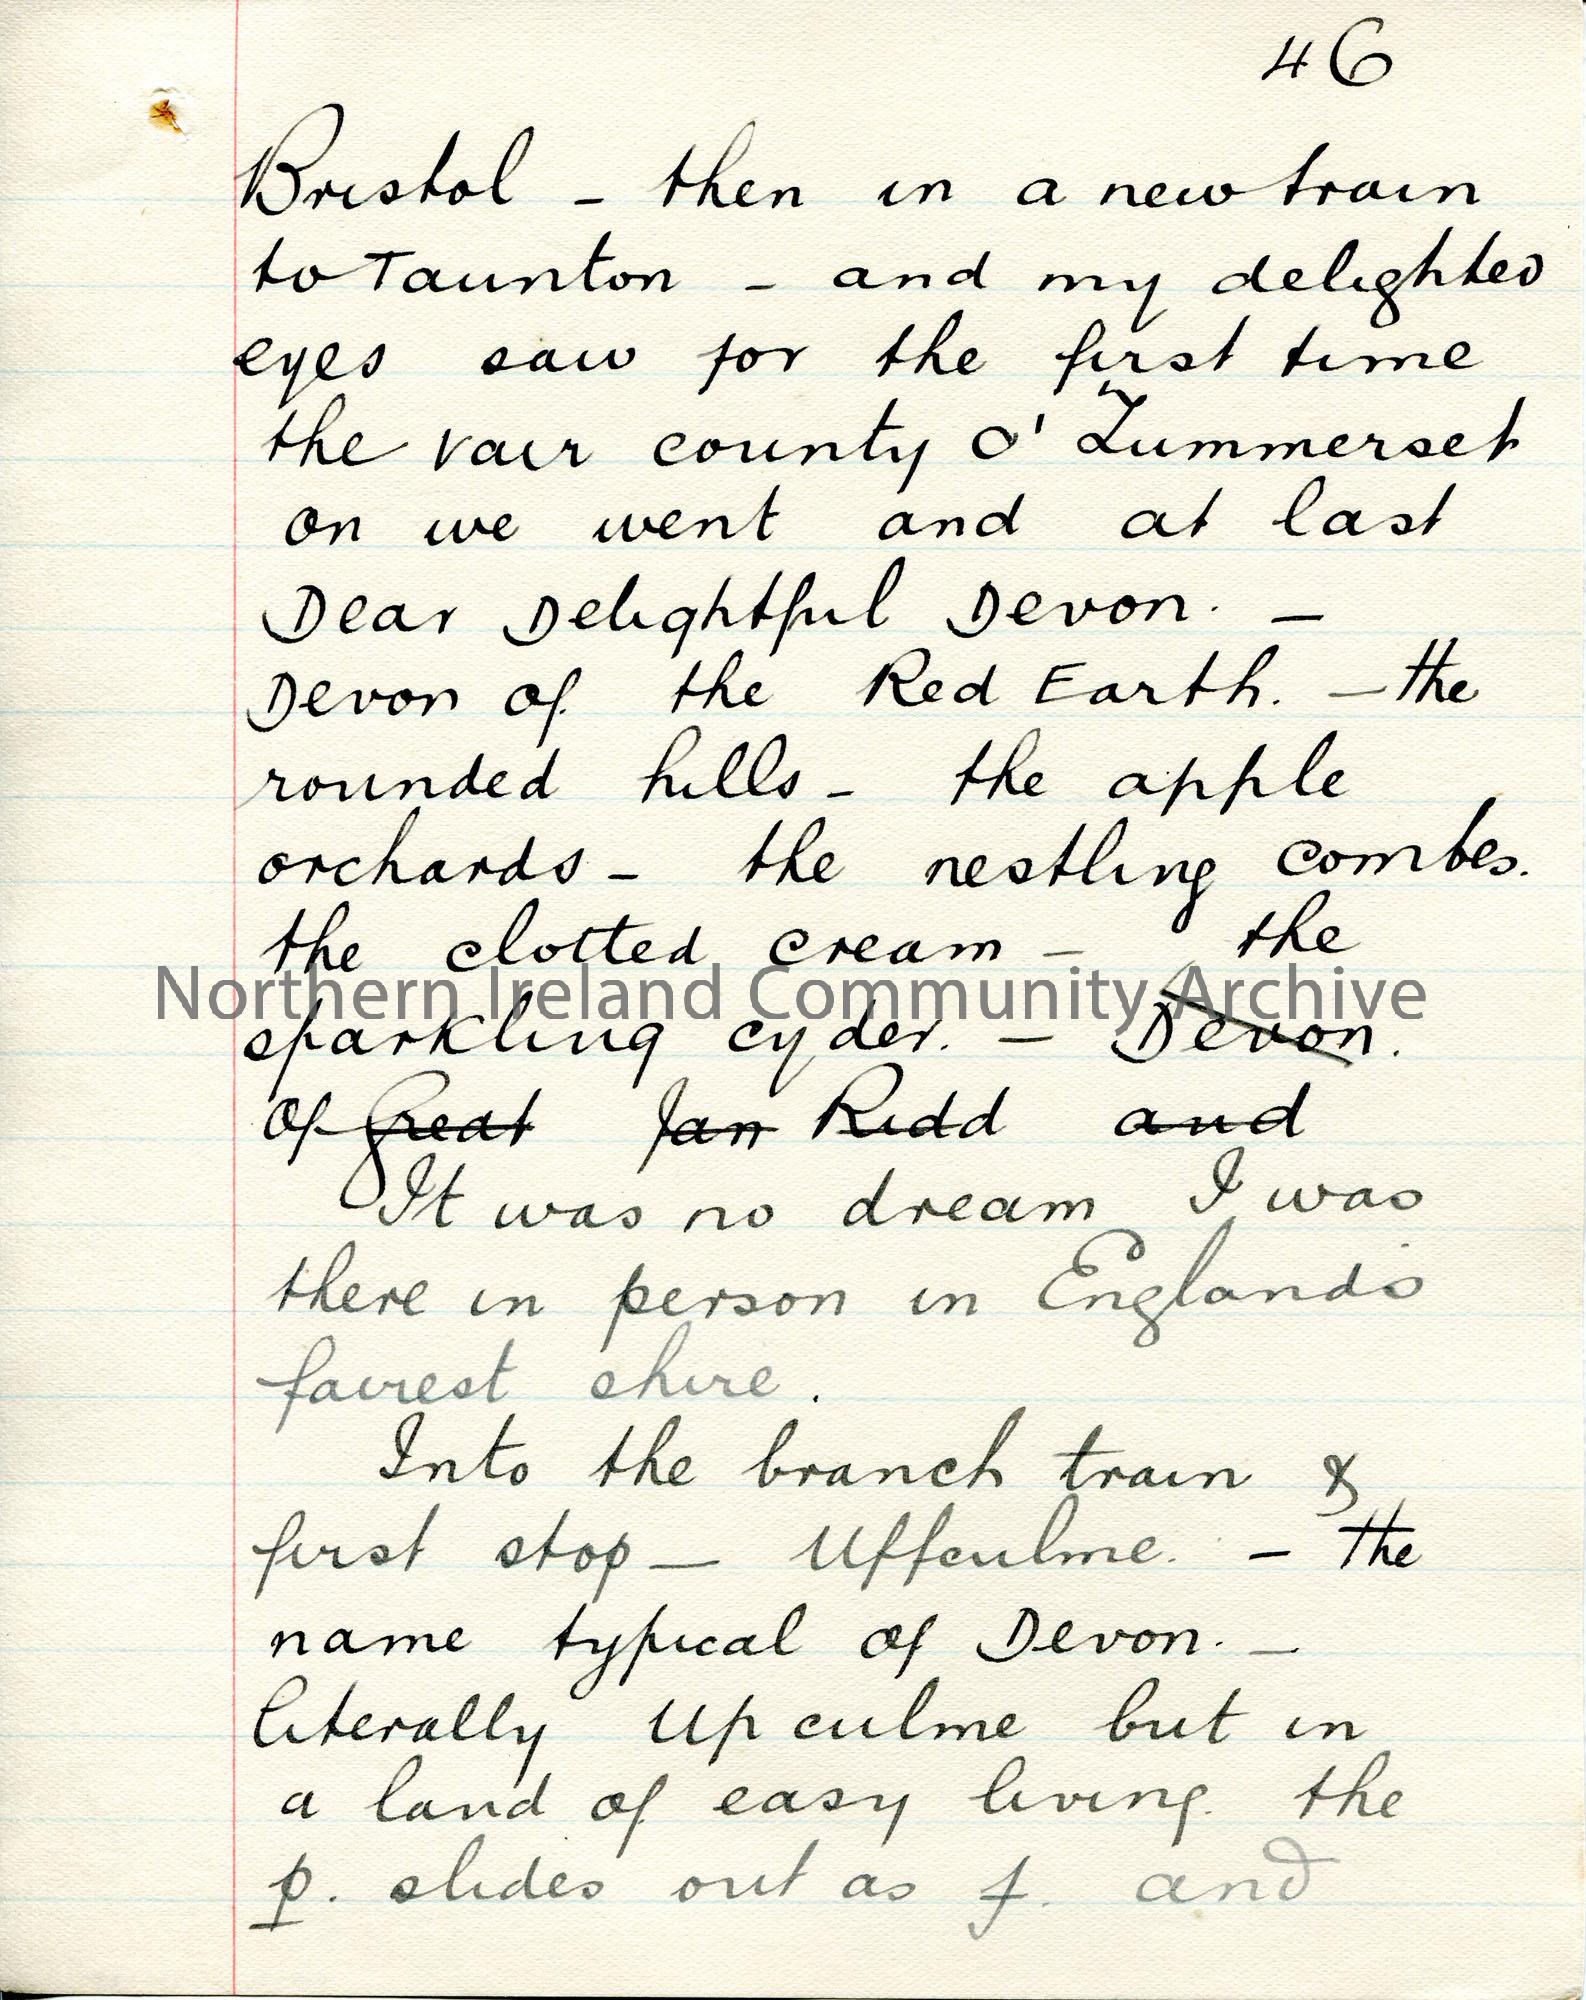 46
Bristol - then in a new train
to Taunton - and my delighted
eyes saw for the first time
the vair county o' Zummerset
on we went and at last
Dear Delightful Devon. -
Devon of the Red Earth. - the
rounded hills - the apple
orchards - the nestling combes.
the clotted cream - the
Northern Ireland Community Archive
sparkling cyder. - Devon.
Of Great Jan Ridd and
It was no dream I was
there in person in Englands
fairest shire.
Into the branch train &
first stop - Uffculme. - The
name typical of Devon. -
literally Up culme but in
a land of easy living. the
p. slides out as f. and